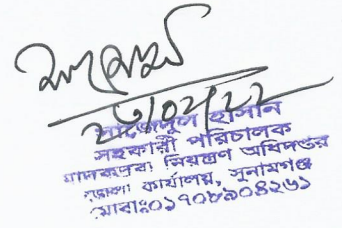 ২৩/০২/২২
হাসান
সহকারী পরিচালক
মাদকদ্রব্য নিয়ন্ত্রণ অধিদপ্তর
জেলা কার্যালয়, সুনামগঞ্জ
মোবাঃ০১৭০৮৯০৪২৬১